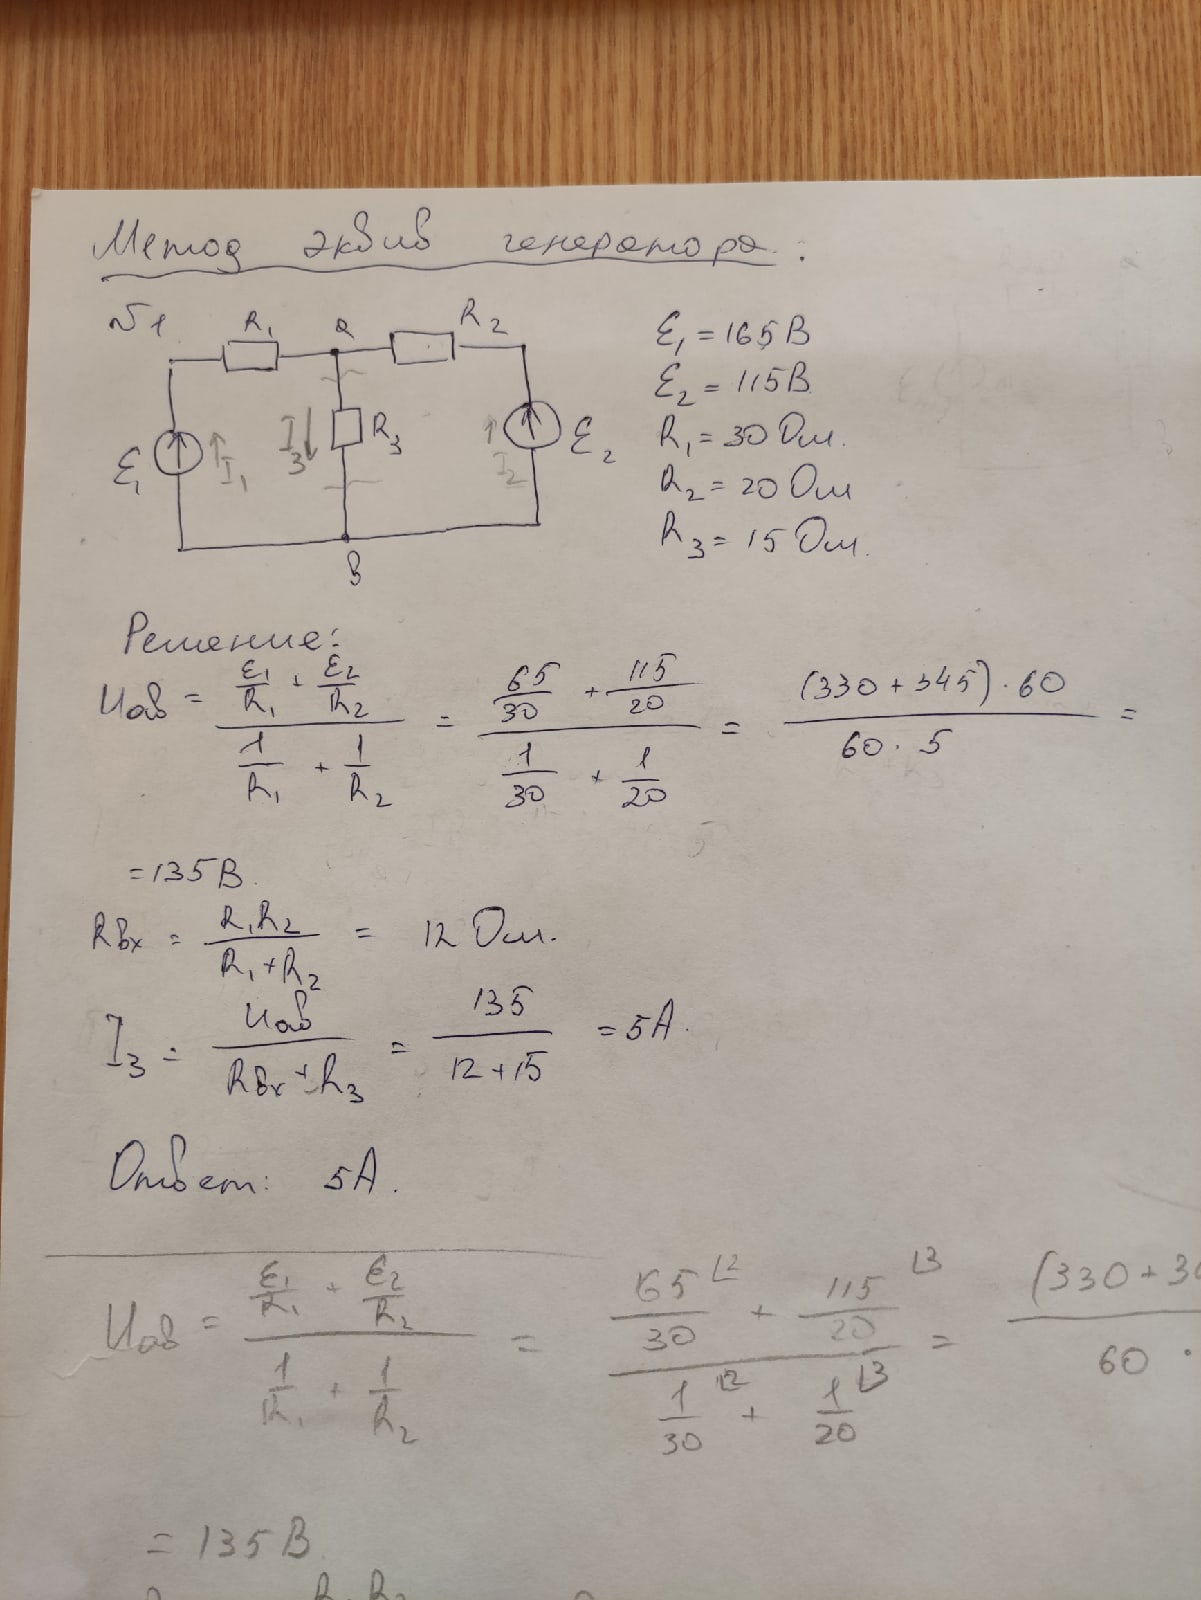 Метод эквив генератора:
№1
R₁ a R₂
ℰ₁ I₁ I₃ R₃ I₂ ℰ₂
B
ℰ₁ = 165 В
ℰ₂ = 115 В
R₁ = 30 Ом.
R₂ = 20 Ом
R₃ = 15 Ом.
Решение:
Uав = (ℰ₁/R₁ + ℰ₂/R₂) / (1/R₁ + 1/R₂) = (65/30 + 115/20) / (1/30 + 1/20) = (330 + 345) · 60 / 60 · 5 =
= 135 В.
Rвх = R₁R₂ / R₁+R₂ = 12 Ом.
I₃ = Uав / Rвх + R₃ = 135 / 12 + 15 = 5А.
Ответ: 5А.
Uав = (ℰ₁/R₁ + ℰ₂/R₂) / (1/R₁ + 1/R₂) = (165/30 ⌊2 + 115/20 ⌊3) / (1/30 ⌊2 + 1/20 ⌊3) = (330 + 3 / 60 ·
= 135 В.
R₁R₂